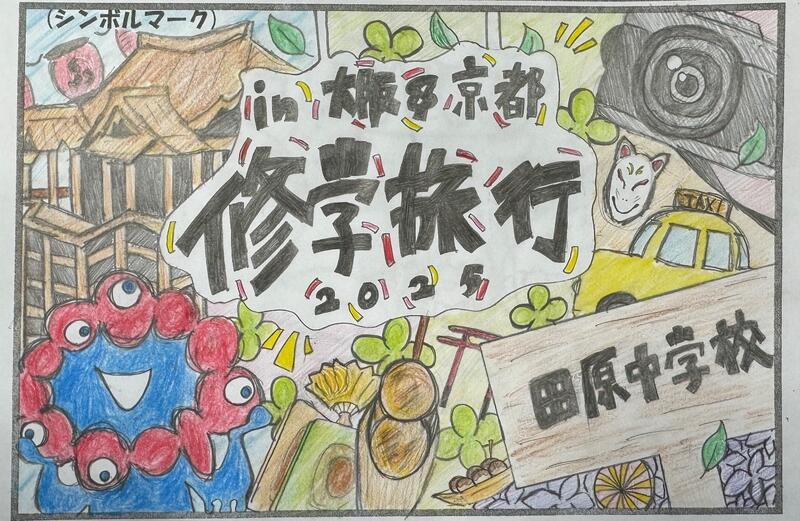 (シンボルマーク)
in 大阪&京都
修学旅行
2025
TAXI
田原中学校